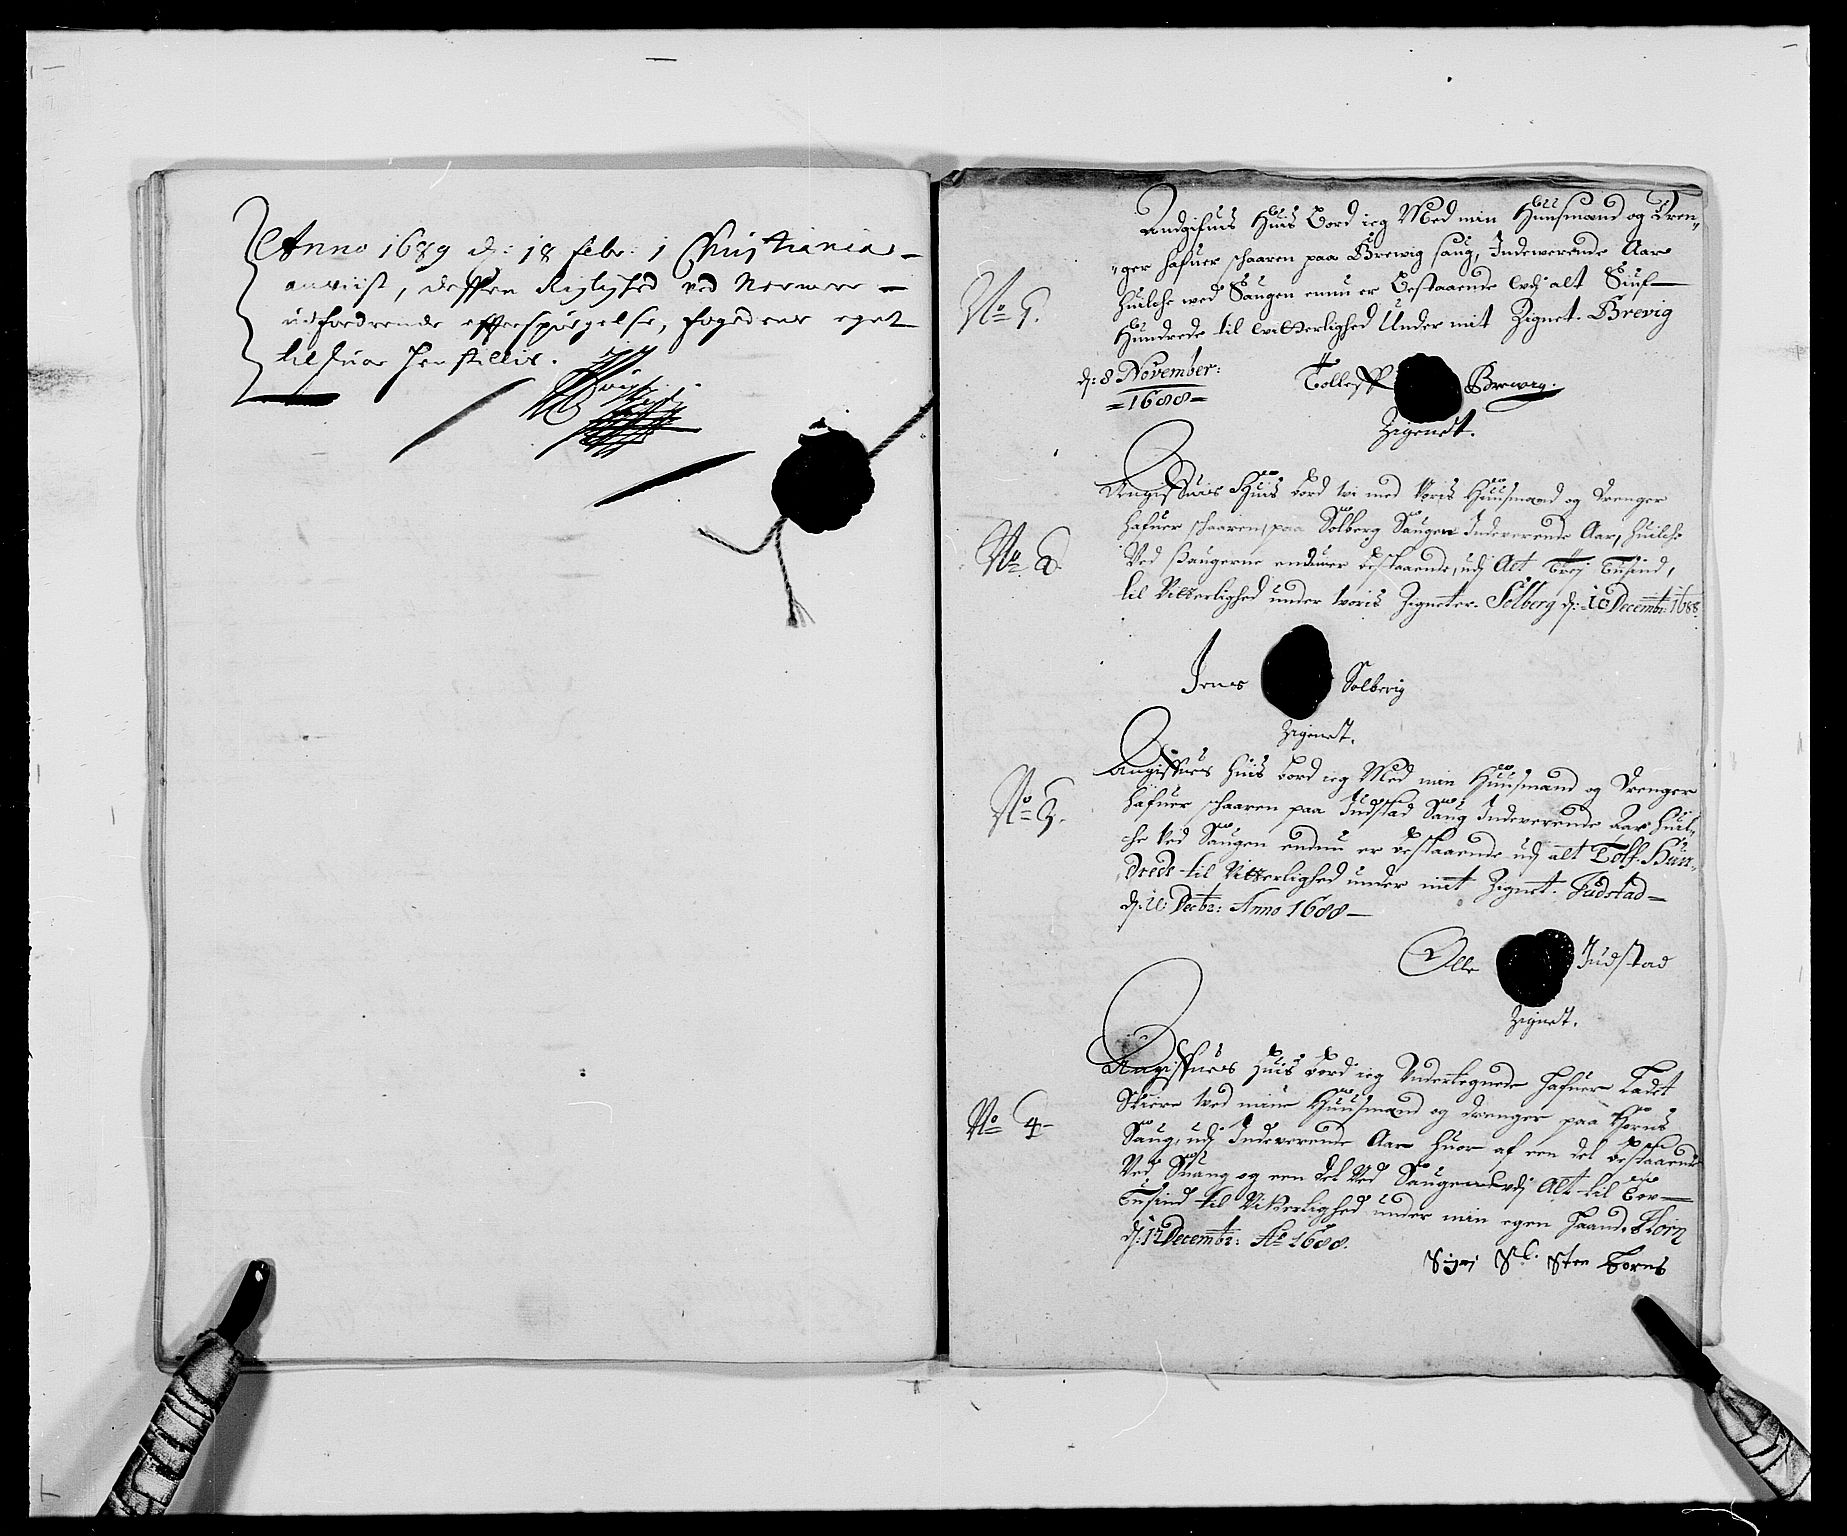 Anno 1689 d: 18 febr: i Christiania
anviist, dessen Rigtighed ved Nermere
udfordrende effterspørgelse, fogeden eget
til suar henstillis.
No 1.
Angifuis Huis Bord ieg Med min Huusmand og Dren-
ger hafuer schaaren paa Brewig Saug, Indewerende Aar
huilche wed Saugen ennu er Bestaaende udj alt Siuf
Hundrede til witterlighed Under mit Zignet. Brevig
d: 8 November:
1688
Tolleff Brewig.
Zigenet.
No 2.
Angiffuis Huis bord wi med voris Huusmænd og Drenger
hafuer schaaren paa Solberg Saugen Indeverende Aar, huilche
Ved Saugerne endnu er bestaaende, udj Alt Trej Tusind,
til Vitterlighed under woris Zigneter. Solberg d: 10 Decembr: 1688.
Jens Solberig
Zigenet.
No 3.
Angiffues huis bord ieg Med min Huusmand og Drenger
hafuer schaaren paa Judstad Saug Indeverende Aar huil-
che Ved Saugen endnu er bestaaende udj alt Tolf Hun-
drede til Vitterlighed under mit Zignet. Judstad
d: 11 Decbr: Anno 1688
Olle Judstad
Zignet.
No 4
Angiffues huis bord ieg Vndertegnede hafuer Ladet
Skiere wed mine Huusmænd og drenger paa Horns
Saug, udj Indeverende Aar huor af een del bestaaende
Ved Stuang og een del Ved Saugen udj Alt til Toe
Tusind til Vitterlighed under min egen haand. Horn
d: 12 Decembr: Ao 1688.
Sigri Sl. Sten Hornß